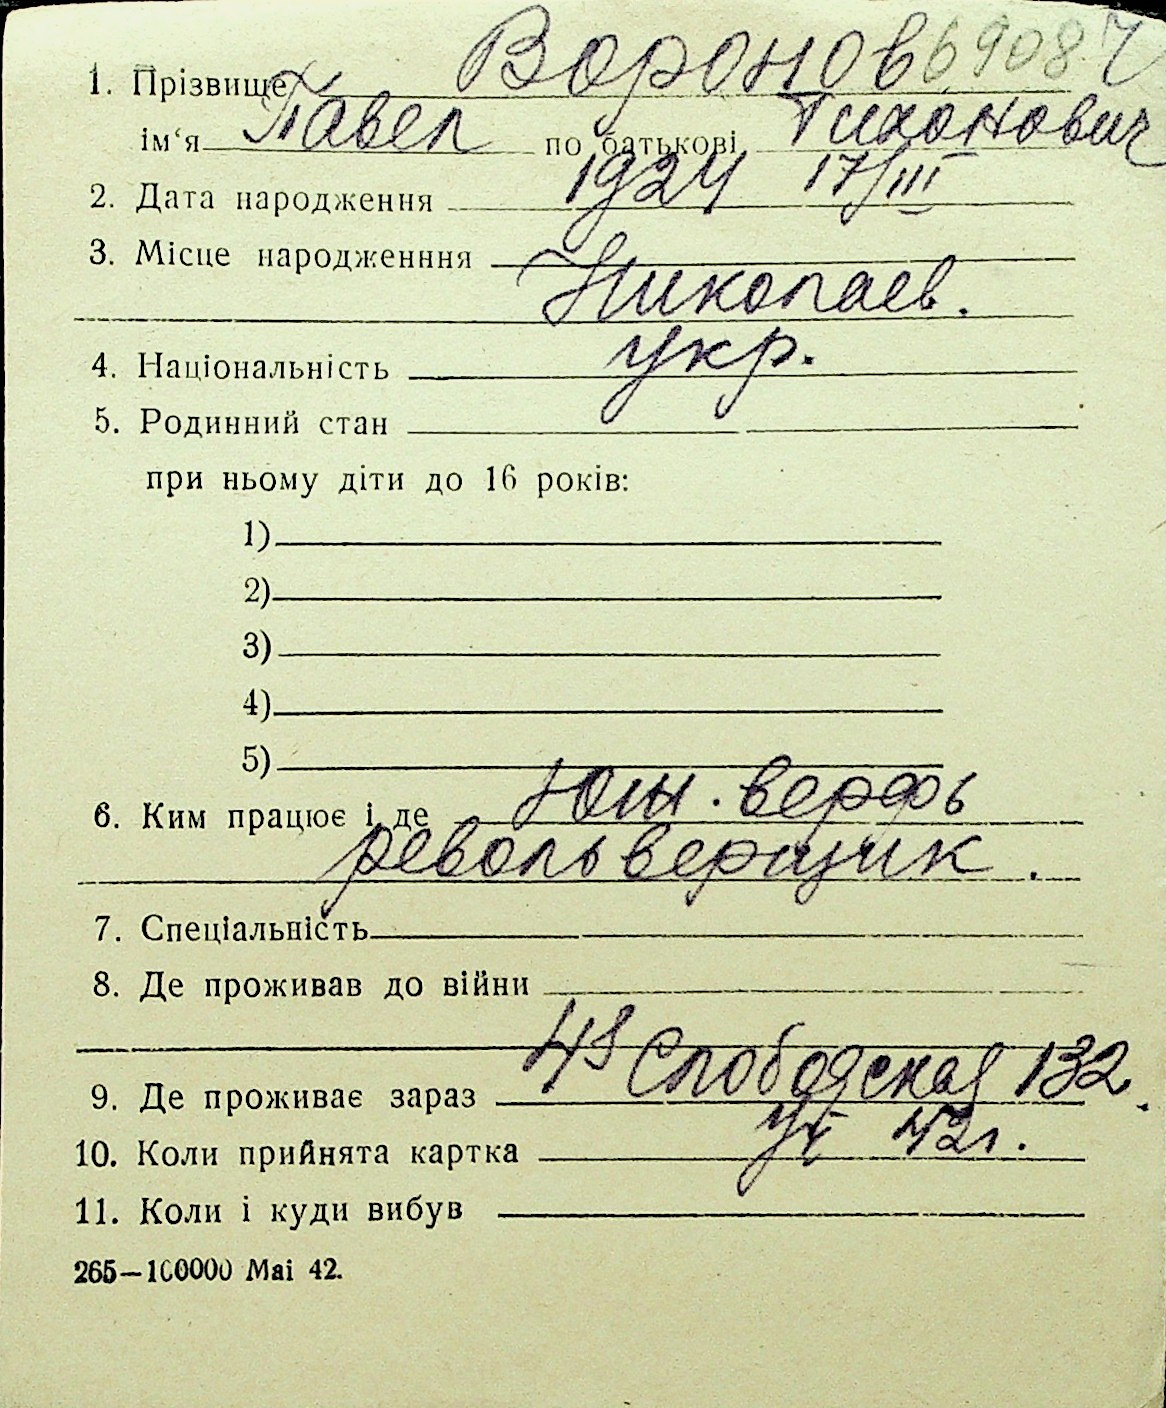 1. Прізвище Воронов 69084
ім‘я Павел по батькові Тихонович
2. Дата народження 1924 17/III
3. Місце народженння
Николаев.
4. Національність укр.
5. Родинний стан
при ньому діти до 16 років:
1)
2)
3)
4)
5)
6. Ким працює і де Южн. верфь
револьверщик.
7. Спеціальність
8. Де проживав до війни
9. Де проживає зараз Слободская 132.
10. Коли прийнята картка 42г.
11. Коли і куди вибув
265—100000 Mai 42.